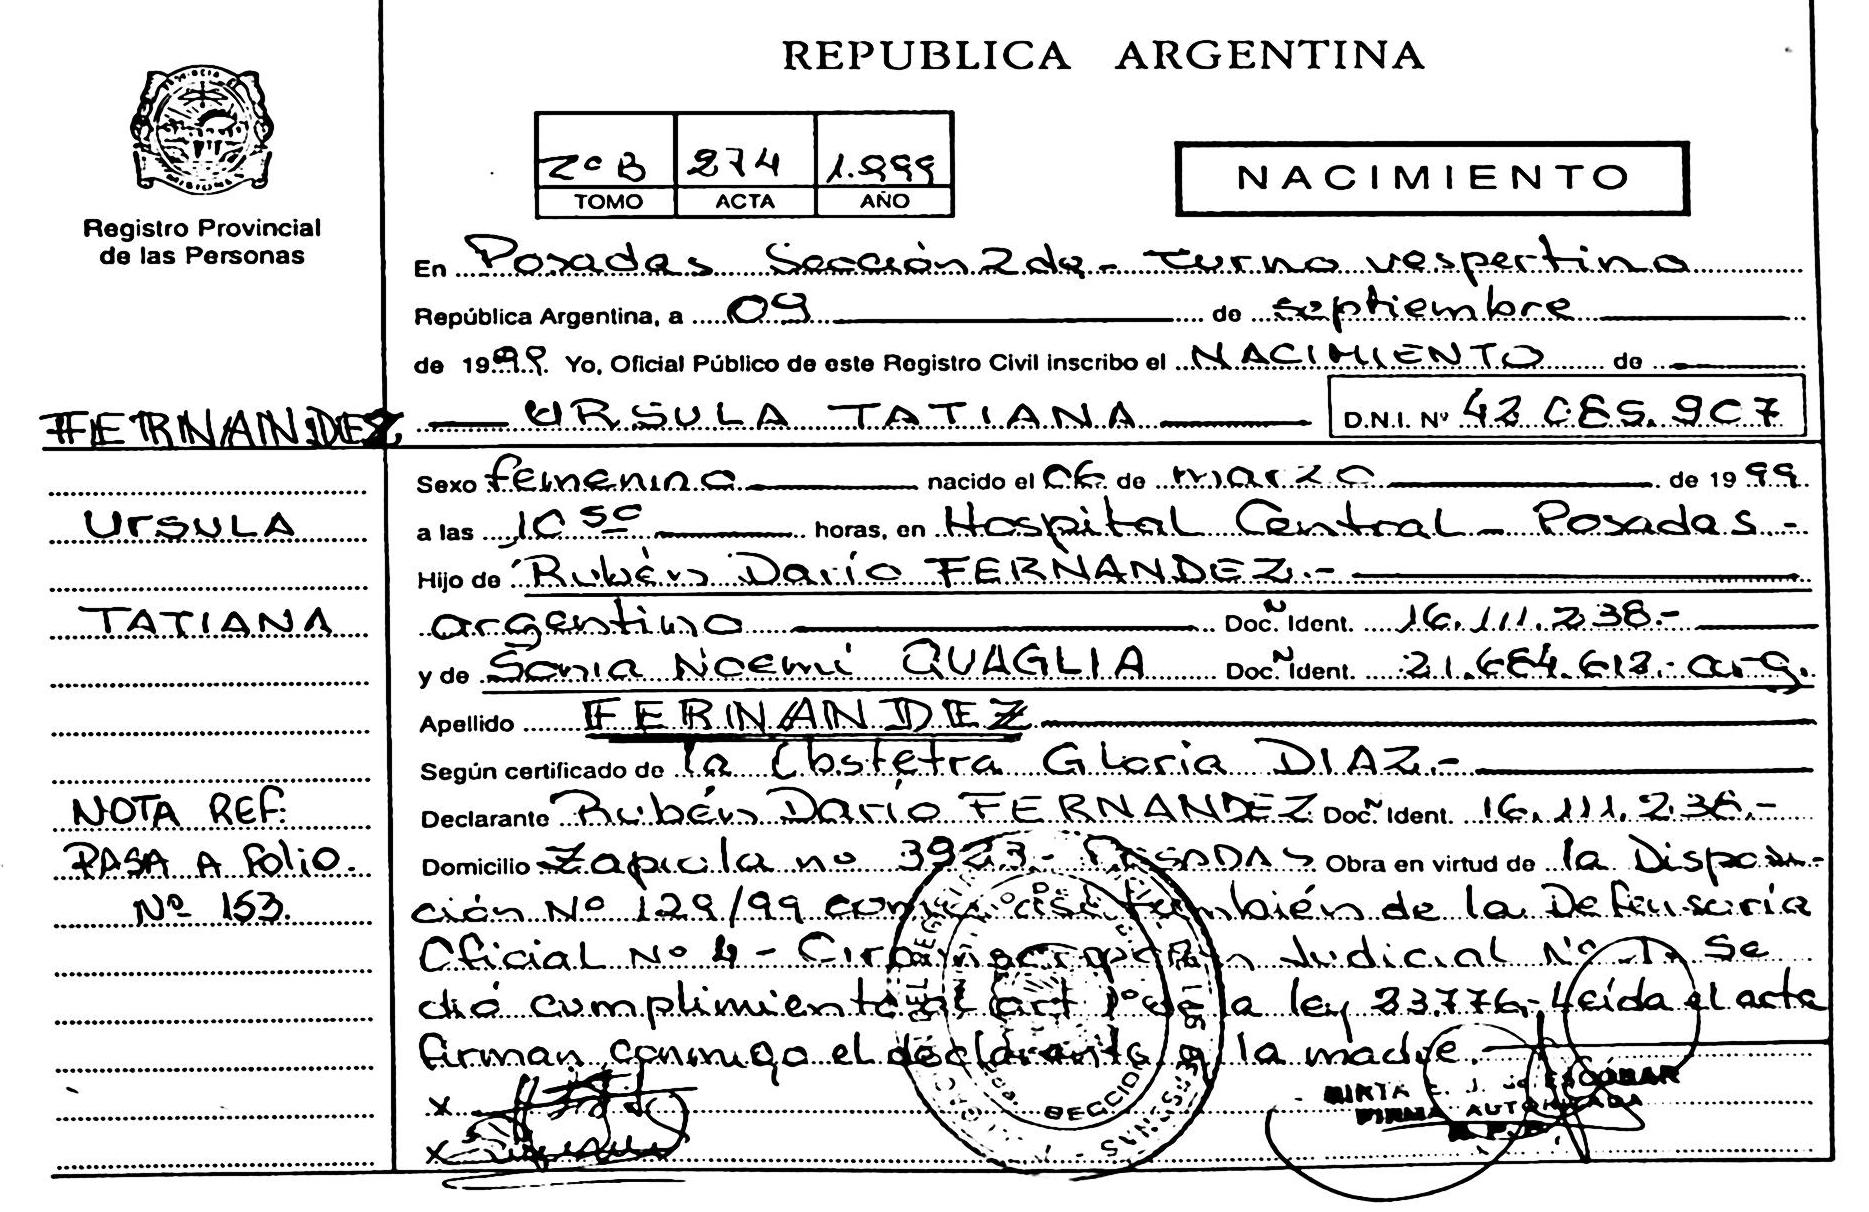 REPUBLICA ARGENTINA
PROVINCIA DE
MISIONES
Registro Provincial
de las Personas
2º B 274 1.999
TOMO ACTA AÑO
NACIMIENTO
En Posadas Sección 2da - turno vespertino
República Argentina, a 09 de septiembre
de 1999. Yo, Oficial Público de este Registro Civil inscribo el NACIMIENTO de
URSULA TATIANA D.N.I. Nº 42.085.907
FERNANDEZ
URSULA
TATIANA
NOTA REF:
PASA A folio.
Nº 153.
Sexo femenino nacido el 06 de marzo de 1999
a las 10 50 horas, en Hospital Central - Posadas -
Hijo de Rubén Darío FERNANDEZ.-
argentino Doc. N Ident. 16.111.238.-
y de Sonia Noemí QUAGLIA Doc. N Ident. 21.684.612.- arg.
Apellido FERNANDEZ
Según certificado de la Obstetra Gloria DIAZ.-
Declarante Rubén Darío FERNANDEZ Doc. N Ident. 16.111.238.-
Domicilio Zapiola nº 3923 - POSADAS Obra en virtud de la Disposi-
ción Nº 129/99 como así también de la Defensoría
Oficial Nº 4 - Circunscripción Judicial Nº 1. Se
dió cumplimiento al art 1º de la ley 23.776.- Leída el acta
firman conmigo el declarante y la madre.
x
x
MIRTA E. J. de ESCOBAR
FIRMA AUTORIZADA
R.P.P.